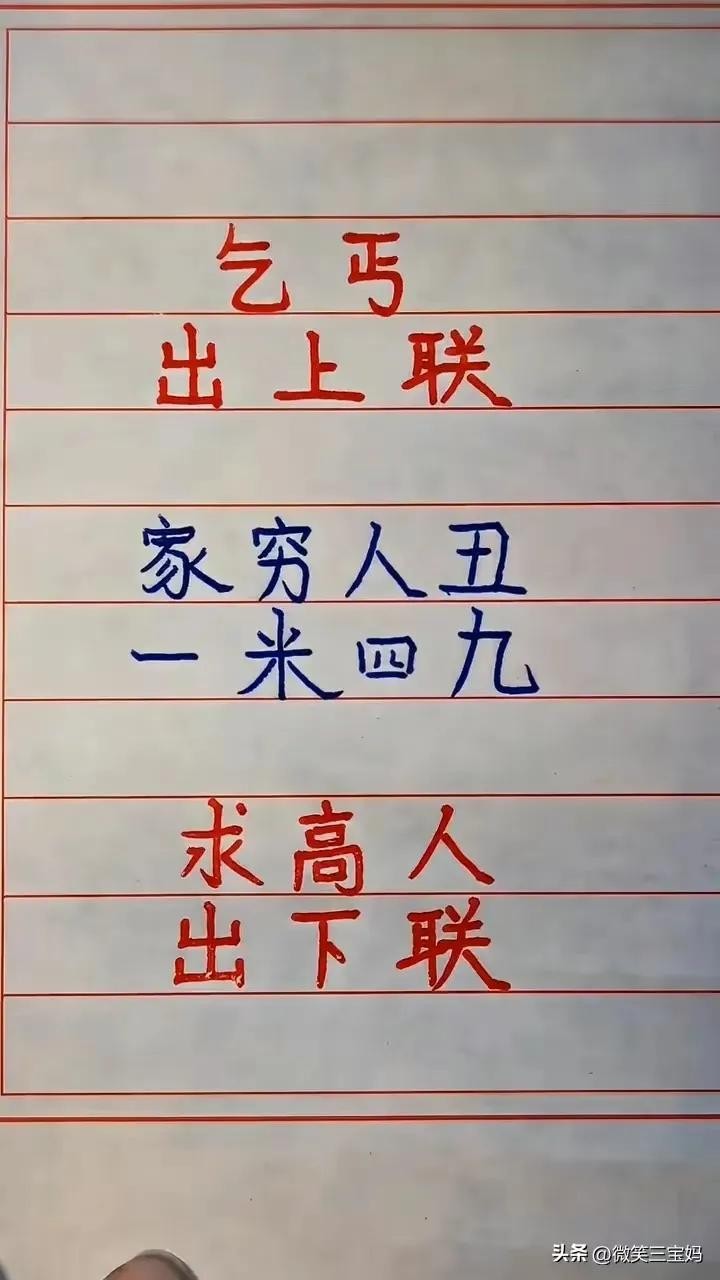 乞丐
出上联
家穷人丑
一米四九
求高人
出下联
头条 @微笑三宝妈